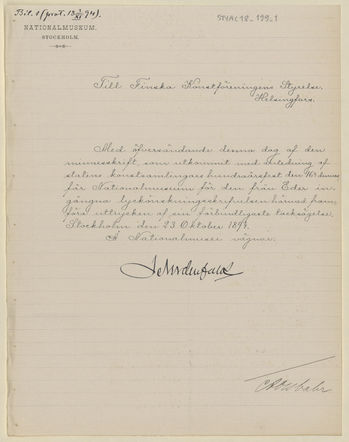 Bil. 1 (prot. 13/XI 94).
STYAC 18_199_1
NATIONALMUSEUM.
STOCKHOLM.
Till Finska Konstföreningens Styrelse,
Helsingfors.
Med öfversändande denna dag af den
minnesskrift, som utkommit med anledning af
statens konstsamlingars hundraårsfest den
får Nationalmuseum för den från Eder in-
gångna lyckönskningsskrifvelsen härmed fram-
föra uttrycken af sin förbindligaste tacksägelse.
Stockholm den 23 Oktober 1894.
Å Nationalmusei vägnar: